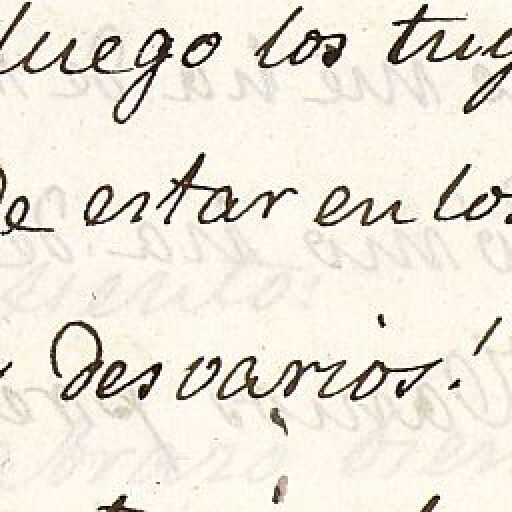 luego los tuy
de estar en los
desvarios!